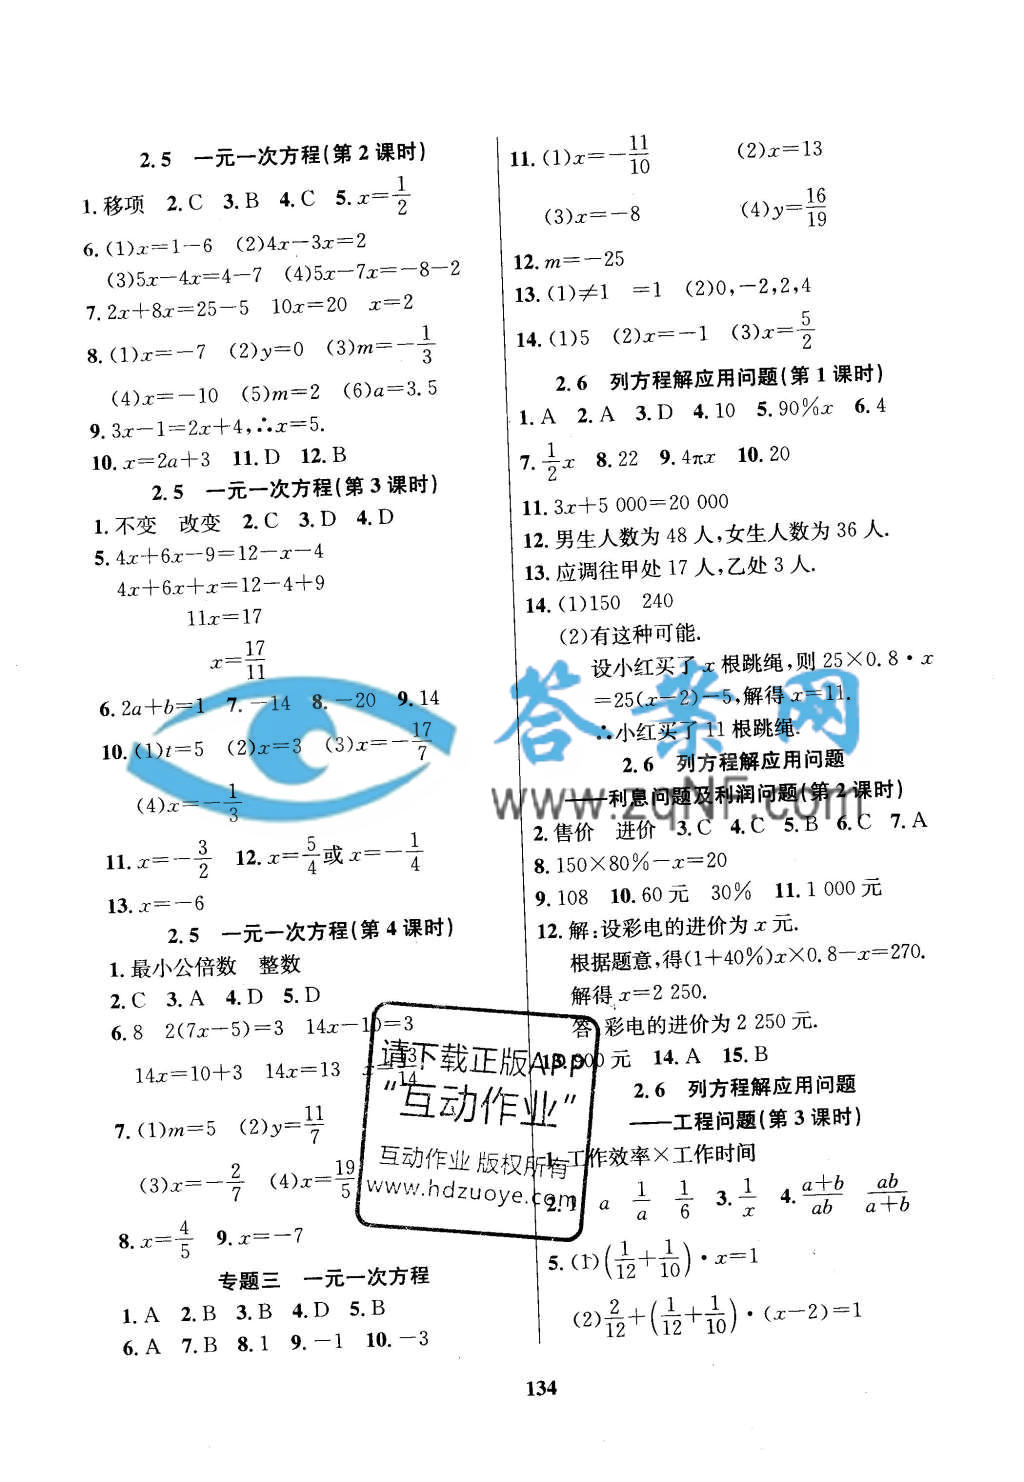 2.5 一元一次方程(第2课时)
1.移项 2.C 3.B 4.C 5.x=1/2
6.(1)x=1-6 (2)4x-3x=2
(3)5x-4x=4-7 (4)5x-7x=-8-2
7.2x+8x=25-5 10x=20 x=2
8.(1)x=-7 (2)y=0 (3)m=-1/3
(4)x=-10 (5)m=2 (6)a=3.5
9.3x-1=2x+4,∴x=5.
10.x=2a+3 11.D 12.B
2.5 一元一次方程(第3课时)
1.不变 改变 2.C 3.D 4.D
5.4x+6x-9=12-x-4
4x+6x+x=12-4+9
11x=17
x=17/11
6.2a+b=1 7.-14 8.-20 9.14
10.(1)t=5 (2)x=3 (3)x=-17/7
(4)x=-1/3
11.x=-3/2 12.x=5/4或x=-1/4
13.x=-6
2.5 一元一次方程(第4课时)
1.最小公倍数 整数
2.C 3.A 4.D 5.D
6.8 2(7x-5)=3 14x-10=3
14x=10+3 14x=13 x=13/14
7.(1)m=5 (2)y=11/7
(3)x=-2/7 (4)x=19/5
8.x=4/5 9.x=-7
专题三 一元一次方程
1.A 2.B 3.B 4.D 5.B
6.A 7.B 8.1 9.-1 10.-3
11.(1)x=-11/10 (2)x=13
(3)x=-8 (4)y=16/19
12.m=-25
13.(1)≠1 =1 (2)0,-2,2,4
14.(1)5 (2)x=-1 (3)x=5/2
2.6 列方程解应用问题(第1课时)
1.A 2.A 3.D 4.10 5.90%x 6.4
7.1/2x 8.22 9.4πx 10.20
11.3x+5 000=20 000
12.男生人数为48人,女生人数为36人.
13.应调往甲处17人,乙处3人.
14.(1)150 240
(2)有这种可能.
设小红买了x根跳绳,则25×0.8·x
=25(x-2)-5,解得x=11.
∴小红买了11根跳绳.
2.6 列方程解应用问题
——利息问题及利润问题(第2课时)
2.售价 进价 3.C 4.C 5.B 6.C 7.A
8.150×80%-x=20
9.108 10.60元 30% 11.1 000元
12.解:设彩电的进价为x元.
根据题意,得(1+40%)x×0.8-x=270.
解得x=2 250.
答:彩电的进价为2 250元.
14.A 15.B
2.6 列方程解应用问题
——工程问题(第3课时)
1.工作效率×工作时间
2.1 a 1/a 1/6 3.1/x 4.a+b/ab ab/a+b
5.(1)(1/12+1/10)·x=1
(2)2/12+(1/12+1/10)·(x-2)=1
134
答案网
www.zqNF.com
请下载正版App
“互动作业”
互动作业 版权所有
www.hdzuoye.com